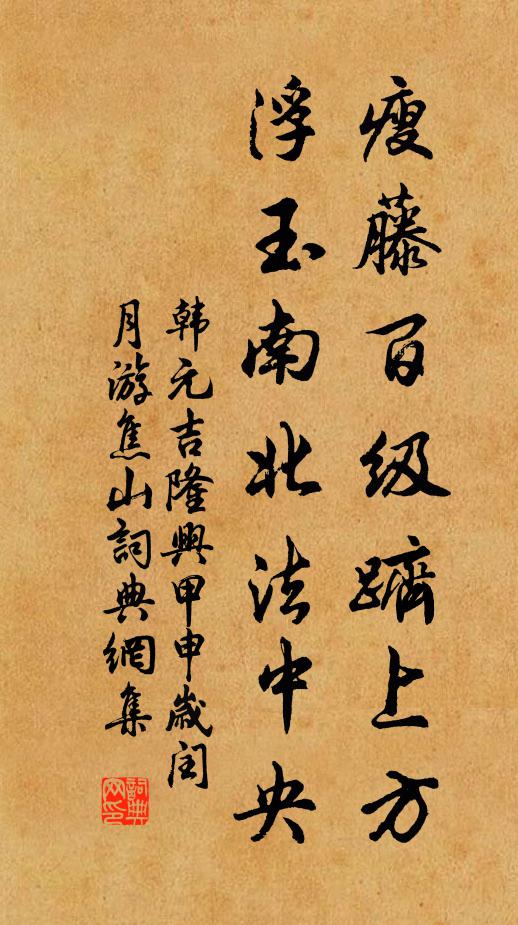 瘦藤百级躋上方
浮玉南北法中央
韩元吉隆興甲申歲闰
月游焦山詞典網集
詞典網印